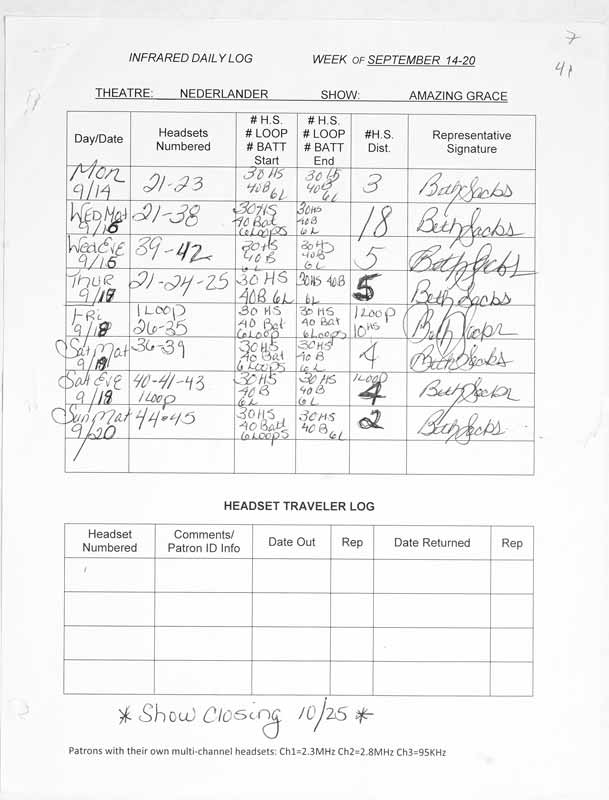 INFRARED DAILY LOG WEEK OF SEPTEMBER 14-20
7
41
THEATRE: NEDERLANDER SHOW: AMAZING GRACE
Day/Date
Headsets Numbered
# H.S. # LOOP # BATT Start
# H.S. # LOOP # BATT End
#H.S. Dist.
Representative Signature
Mon 9/14 21-23 30 HS 40B 6L 30 HS 40B 6L 3 Beth Jacks
Wed Mat 9/16 21-38 30 HS 40 Bat 6 Loops 30 HS 40B 6L 18 Beth Jacks
Wed Eve 9/16 39-42 30 HS 40B 6L 30 HS 40B 6L 5 Beth Jacks
Thur 9/17 21-24-25 30 HS 40B 6L 30 HS 40B 6L 5 Beth Jacks
Fri 9/18 1 Loop 26-35 30 HS 40 Bat 6 Loop 30 HS 40 Bat 6 Loops 1 Loop 10 HS Beth Jacks
Sat Mat 9/19 36-39 30 HS 40 Bat 6 Loops 30 HS 40B 6L 4 Beth Jacks
Sat Eve 9/19 40-41-43 1 Loop 30 HS 40B 6L 30 HS 40 B 6L 1 Loop 4 Beth Jacks
Sun Mat 9/20 44-45 30 HS 40 Batt 6 Loops 30 HS 40 B 6L 2 Beth Jacks
HEADSET TRAVELER LOG
Headset Numbered
Comments/ Patron ID Info
Date Out
Rep
Date Returned
Rep
* Show Closing 10/25 *
Patrons with their own multi-channel headsets: Ch1=2.3MHz Ch2=2.8MHz Ch3=95KHz